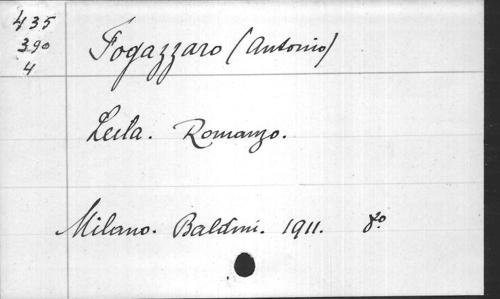 435
390
4
Fogazzaro (Antonio)
Leila. Romanzo.
Milano. Baldini. 1911. 8o.